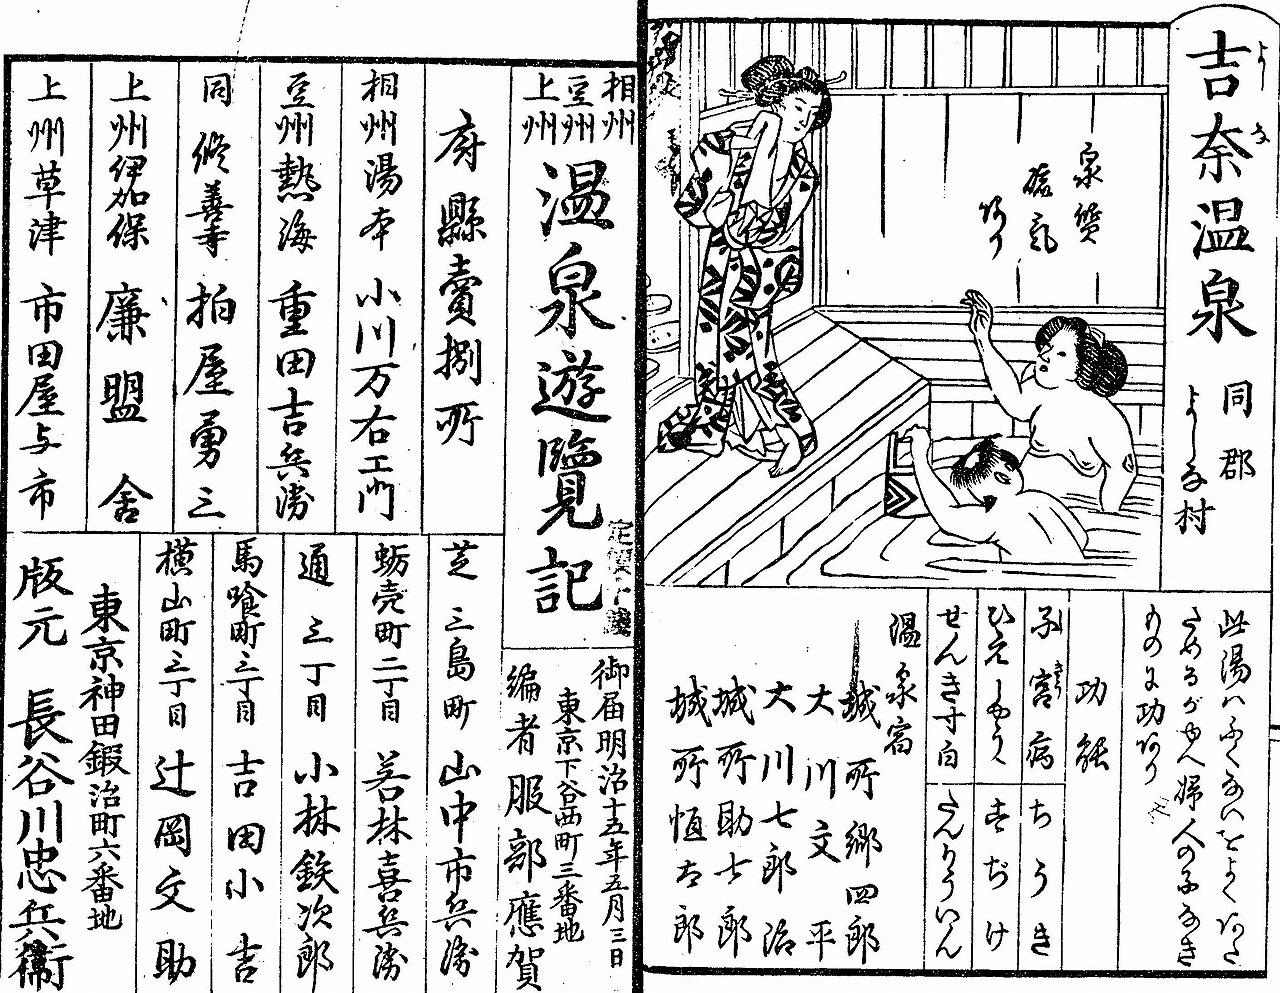 吉奈温泉
よしな
同郡
よしな村
泉質
塩気
あり
此湯ハふくないをよくあたゝ
ためるがゆへ婦人の子なき
ものに功あり
功能
子宮病
ちうき
ひえしやう
すぢけ
せんき寸白
たんりういん
温泉宿
城所郷四郎
大川文平
大川七郎治
城所助七郎
城所恒太郎
相州
豆州
上州
温泉遊覽記
御届明治十五年五月三日
東京下谷西町三番地
編者 服部應賀
府縣賣捌所
相州湯本 小川万右エ門
豆州熱海 重田吉兵衛
同修善寺 柏屋勇三
上州伊加保 廉盟舎
上州草津 市田屋与市
芝三島町 山中市兵衛
蛎売町二丁目 若林喜兵衛
通三丁目 小林鉄次郎
馬喰町三丁目 吉田小吉
横山町三丁目 辻岡文助
東京神田鍛冶町六番地
版元 長谷川忠兵衛